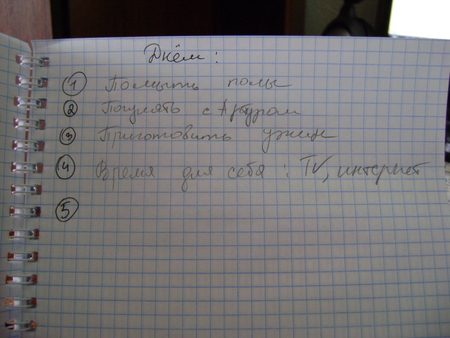 Днём:
1 Помыть полы
2 Погулять с Артуром
3 Приготовить ужин
4 Время для себя: TV, интернет
5